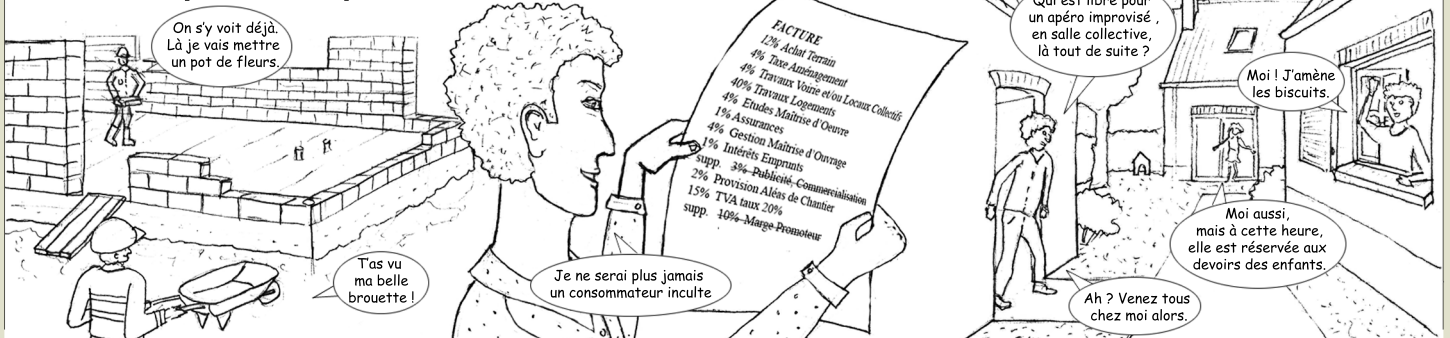 On s'y voit déjà.
Là je vais mettre
un pot de fleurs.
T'as vu
ma belle
brouette !
FACTURE
12% Achat Terrain
4% Taxe Aménagement
4% Travaux Voirie et/ou Locaux Collectifs
40% Travaux Logements
4% Etudes Maîtrise d'Oeuvre
1% Assurances
4% Gestion Maîtrise d'Ouvrage
1% Intérêts Emprunts
supp. 3% Publicité, Commercialisation
2% Provision Aléas de Chantier
15% TVA taux 20%
supp. 10% Marge Promoteur
Je ne serai plus jamais
un consommateur inculte
Qui est libre pour
un apéro improvisé ,
en salle collective,
là tout de suite ?
Moi ! J'amène
les biscuits.
Moi aussi,
mais à cette heure,
elle est réservée aux
devoirs des enfants.
Ah ? Venez tous
chez moi alors.